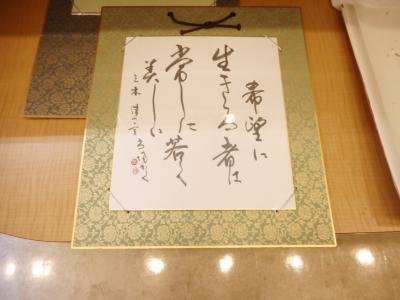 希望に
生きる者は
常に若く
美しい
三木清の言